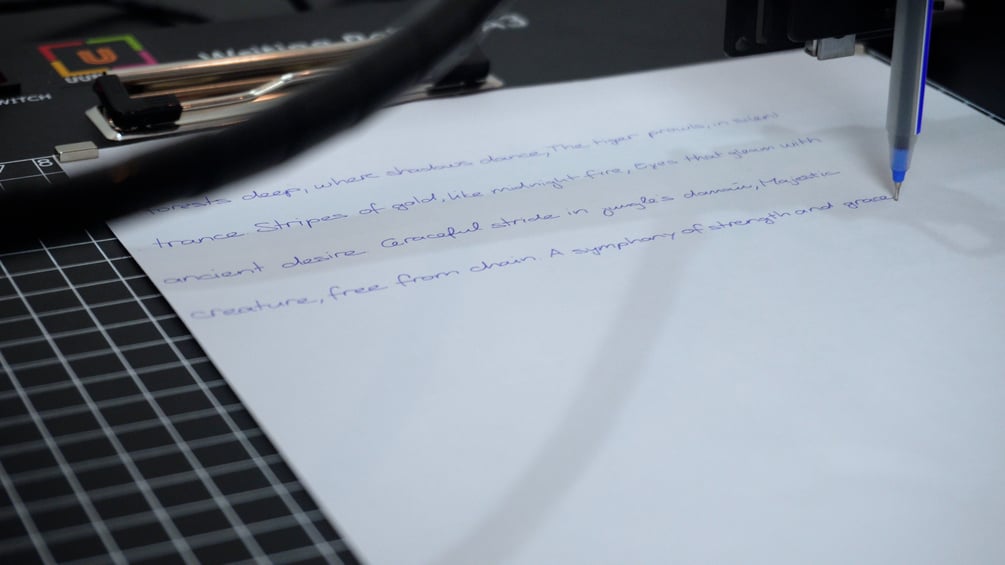 U
UUN
Writing Ro A3
WITCH
7 8
forests deep, where shadows dance, The tiger prowls, in silent
trance Stripes of gold, like midnight fire, Eyes that gleam with
ancient desire Graceful stride in jungles domain, Majestic
creature, free from chain. A symphony of strength and grace